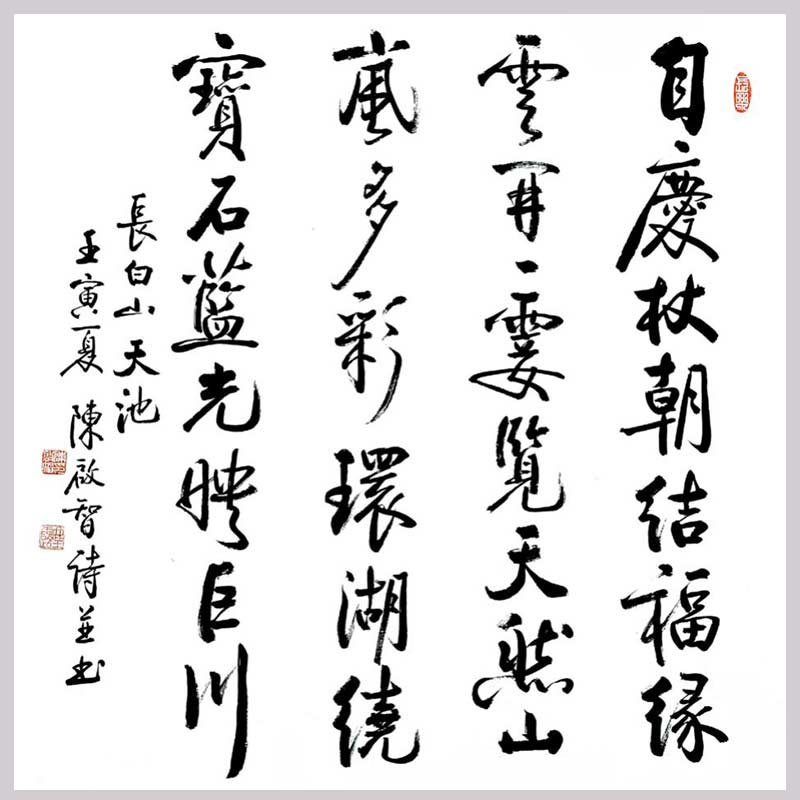 自慶杖朝結福緣
雲開一霎覽天然山
嵐多彩環湖繞
寶石藍光映巨川
長白山天池
壬寅夏 陳啟智詩並書